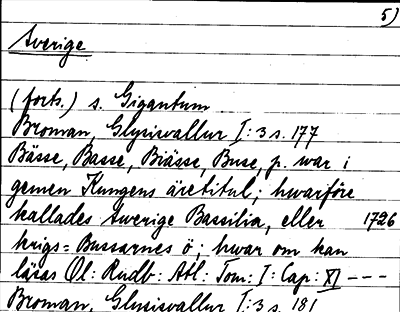 5)
Sverige
(forts.) s. Gigantum
Broman, Glysisvallur I: 3 s. 177
Bässe, Basse, Biässe, Buse, p. war i
gemen Kungens äretitul; hwarföre
kallades Swerige Bassilia, eller 1726
krigs=Bussarnes ö; hwar om kan
läsas Ol: Rudb: Atl: Tom: I: Cap: XI ---
Broman, Glysisvallur I: 3 s. 181